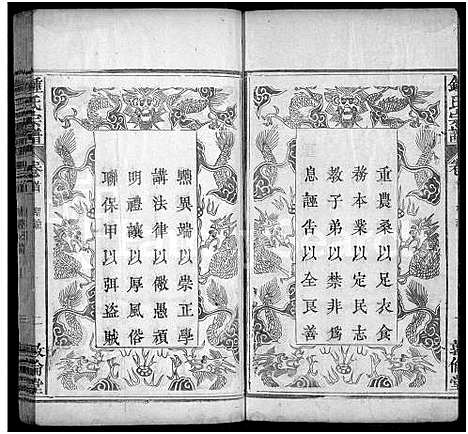 重農桑以足衣食
務本業以定民志
教子弟以禁非為
息誣告以全良善
黜異端以崇正學
講法律以儆愚頑
明禮讓以厚風俗
聯保甲以弭盜賊
鍾氏宗譜
卷首
敦倫堂
鍾氏宗譜
敦倫堂